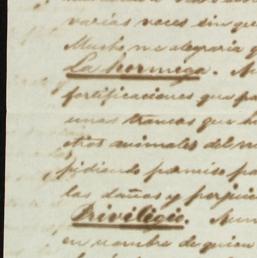 varias veces sin que
Mucho me alegraria q
La hormega. A
fortificaciones que pa
unas trancas que ha
otros animales del m
pidiendo permiso pa
los daños y perjuic
Privilegio. Aun
en nombre de quien